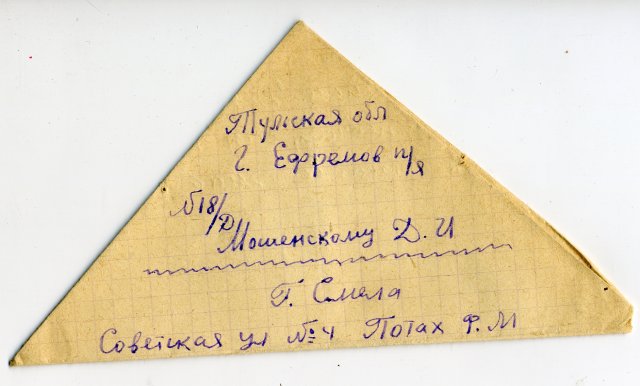 Тульская обл
г. Ефремов п/я
№18/Д
Мошенскому Д. И
Г. Смела
Советская ул №4 Потах Ф. М